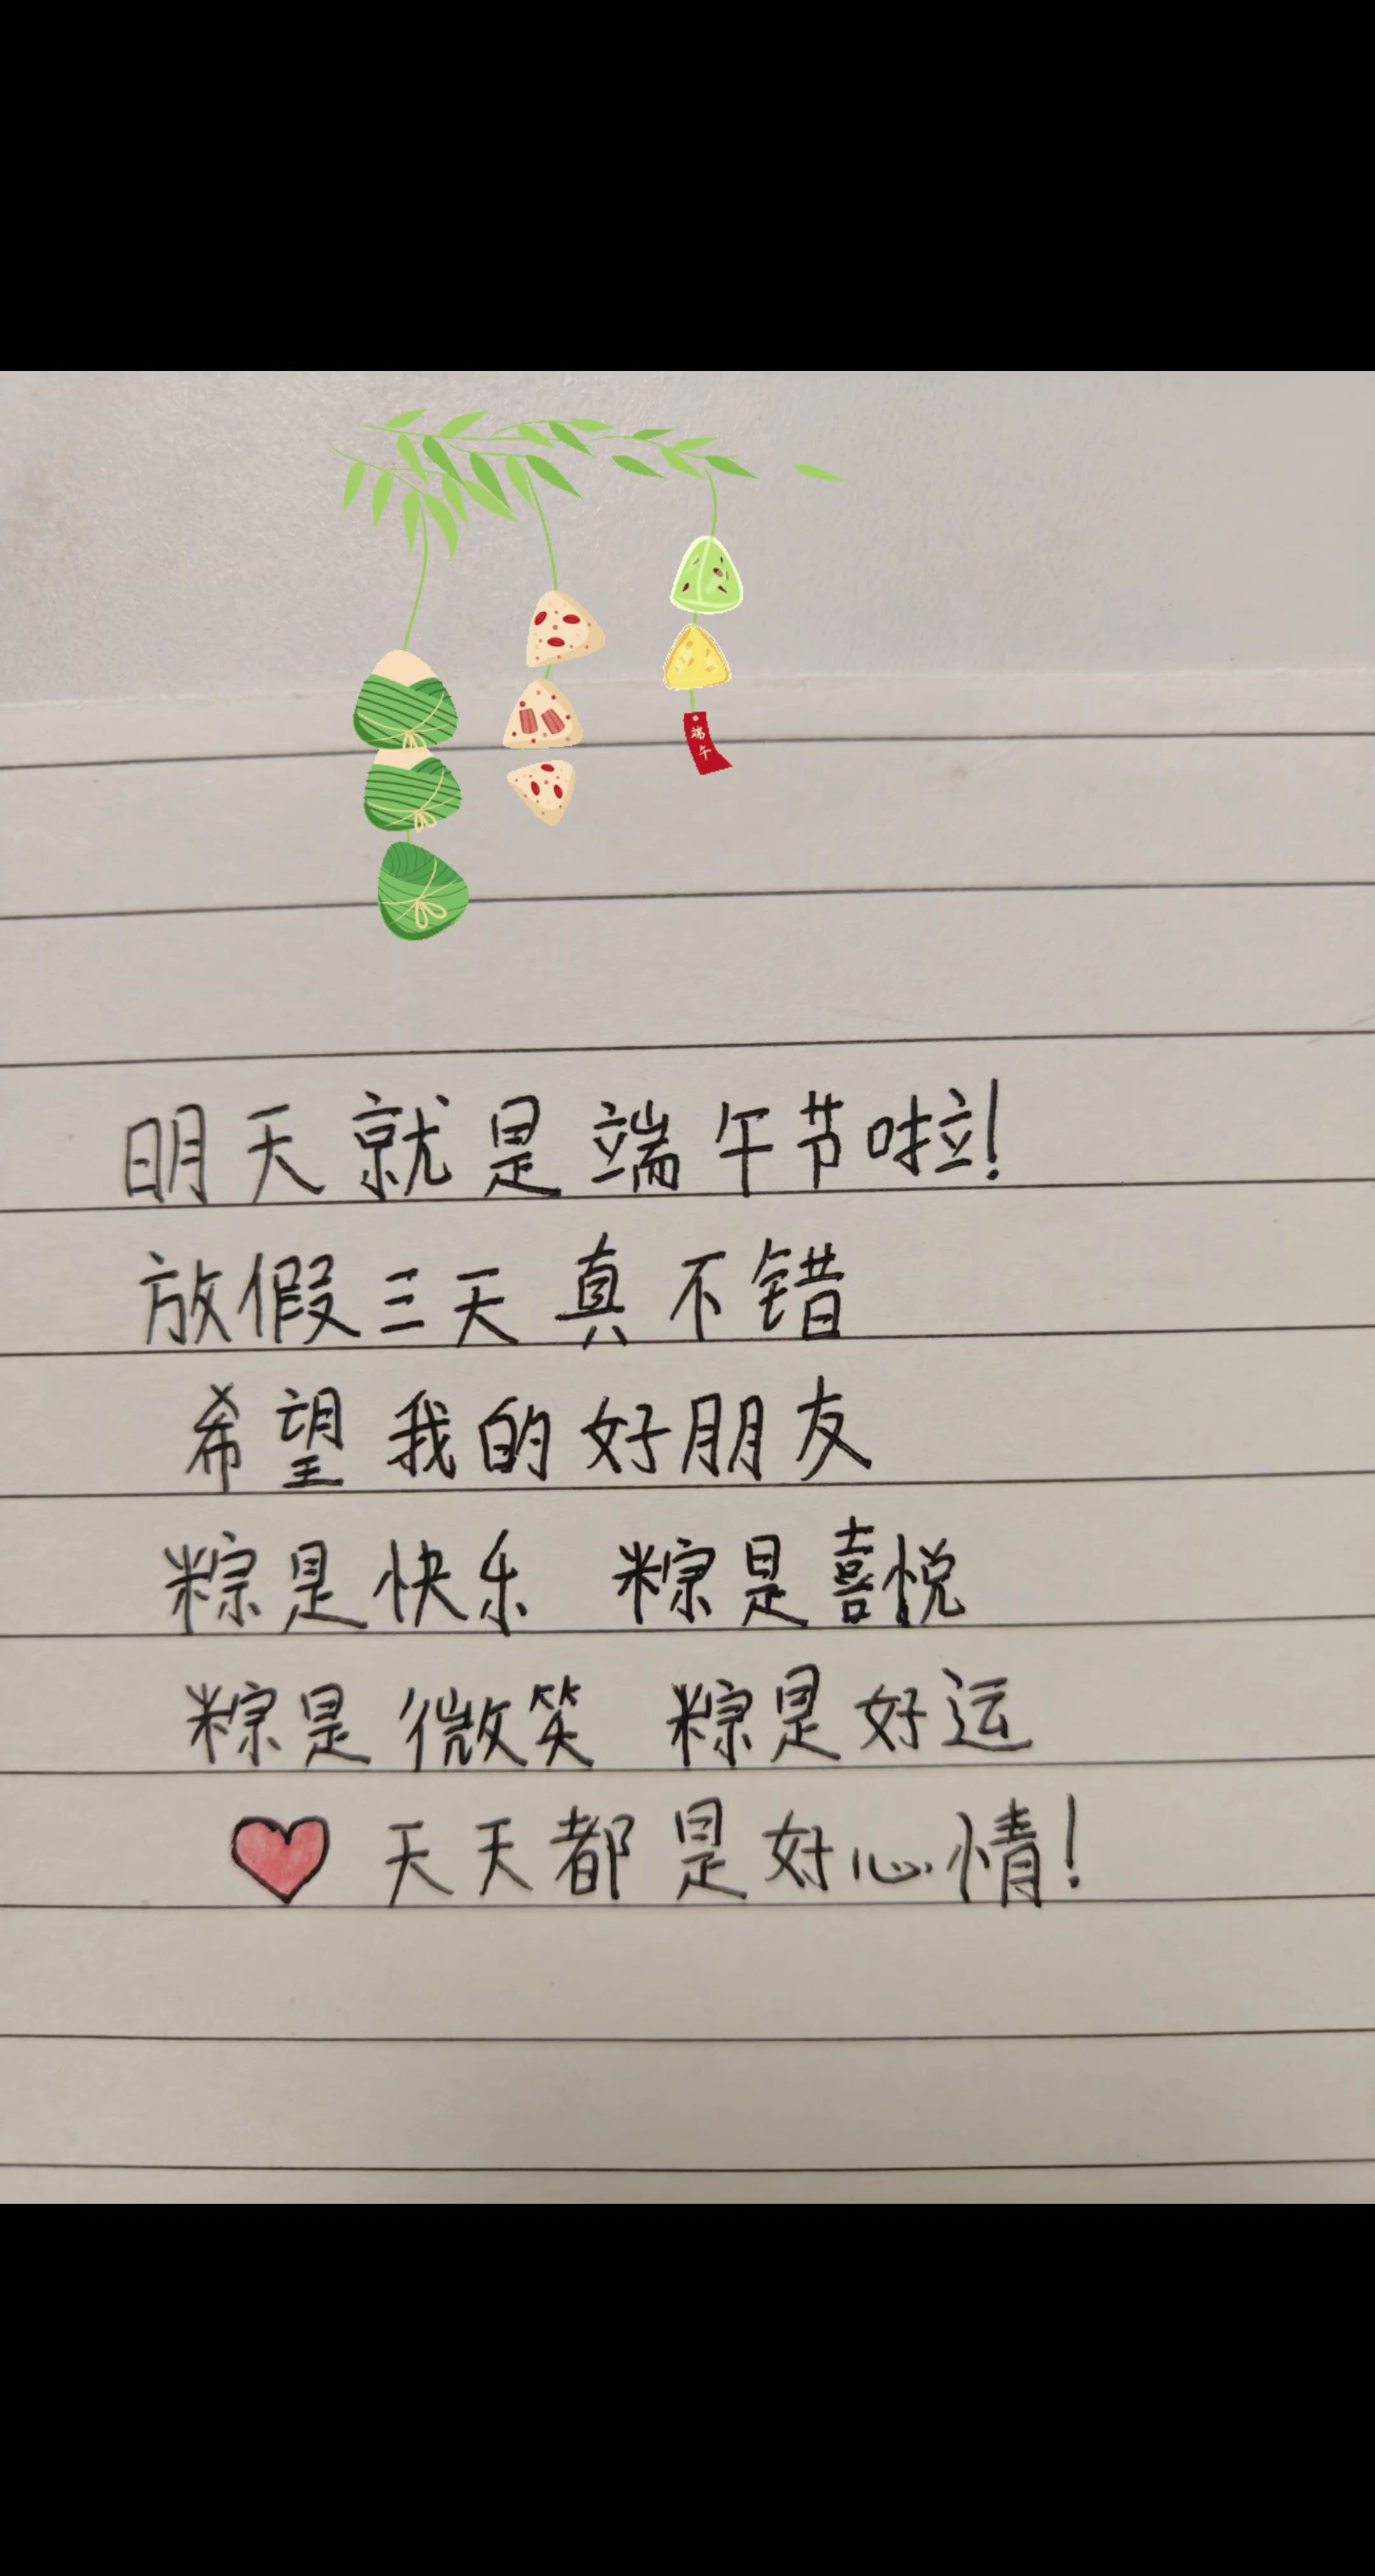 端午
明天就是端午节啦!
放假三天真不错
希望我的好朋友
粽是快乐 粽是喜悦
粽是微笑 粽是好运
天天都是好心情!